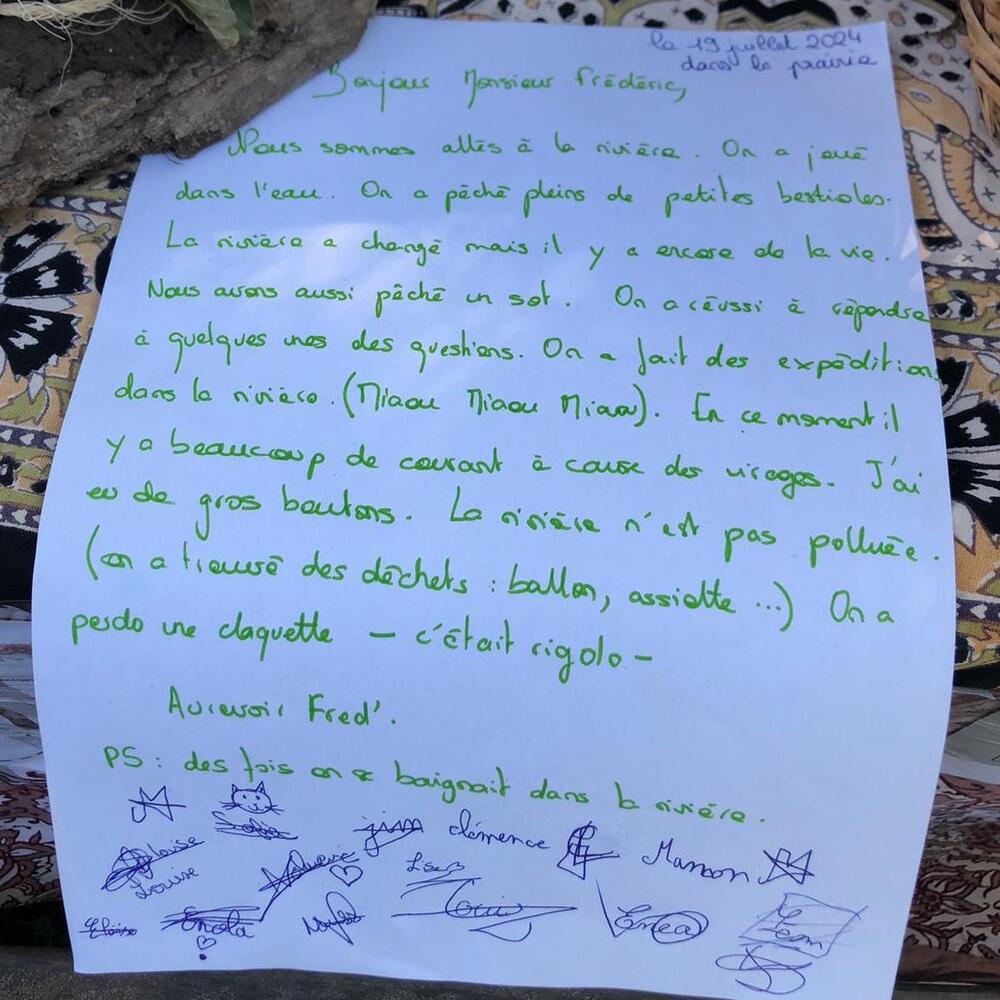 le 19 juillet 2024
dans la prairie
Bonjour Monsieur Frédéric,
Nous sommes allés à la rivière. On a joué
dans l'eau. On a pêché pleins de petites bestioles.
La rivière a changé mais il y a encore de la vie.
Nous avons aussi pêché un sot. On a réussi à répondre
à quelques unes des questions. On a fait des expédition
dans la rivière. (Miaou Miaou Miaou). En ce moment il
y a beaucoup de courant à cause des virages. J'ai
eu de gros boutons. La rivière n'est pas polluée.
(on a trouvé des déchets : ballon, assiette ...) On a
perdo une claquette — c'était rigolo —
Aurevoir Fred'.
PS : des fois on se baignait dans la rivière.
jim clémence Manon
Louise Lise
Enola Louis Enea Leon